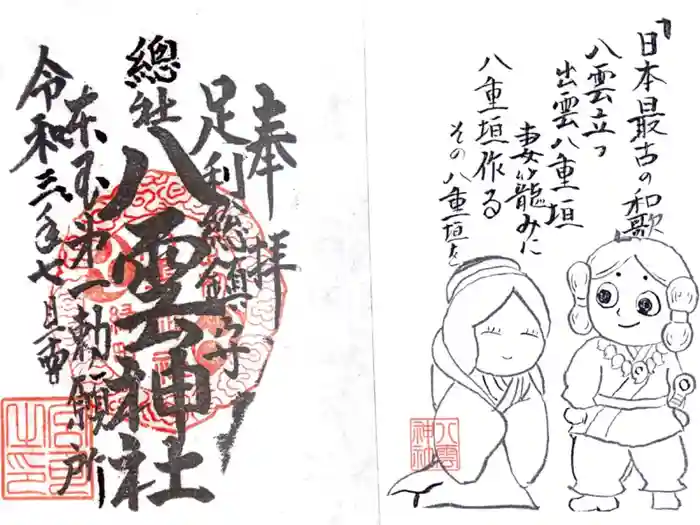 『日本最古の和歌』
八雲立つ
出雲八重垣
妻籠みに
八重垣作る
その八重垣を
八雲
神社
奉拝
足利総鎮守
總社
八雲神社
東国第一勅願所
令和三年七月